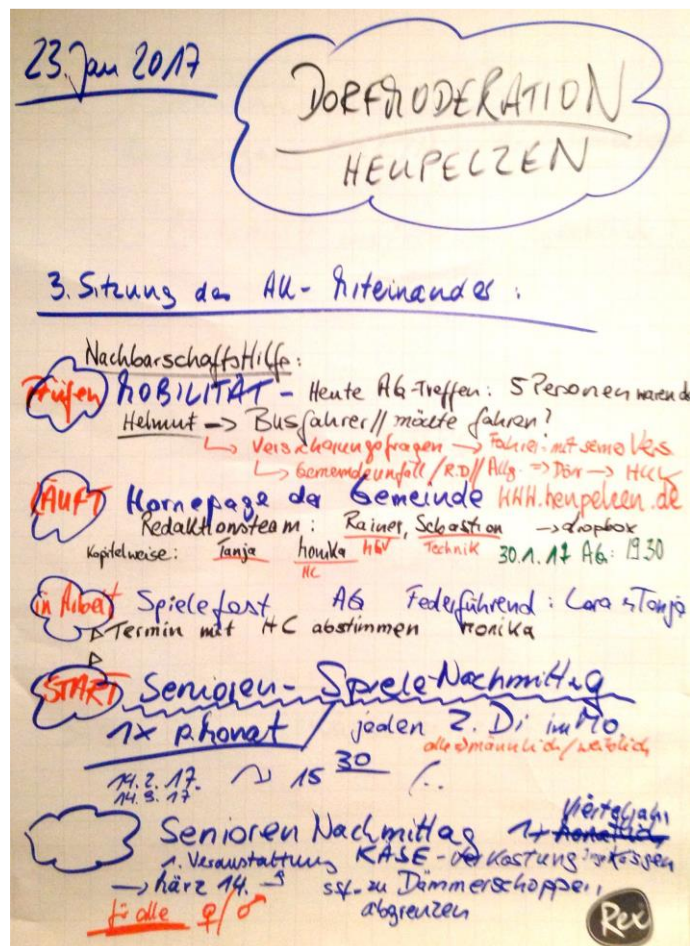 23. Jan 2017
DORFMODERATION
HEUPELZEN
3. Sitzung des AK - Miteinander:
NachbarschaftsHilfe:
Prüfen MOBILITÄT - Heute AG-Treffen: 5 Personen waren da
Helmut -> Busfahrer // möchte fahren?
-> Versicherungsfragen -> Fahrer mit seine Vers.
-> Gemeindeunfall / R.D // Allg. => Dör ->
LÄUFT Homepage der Gemeinde WWW.heupelzen.de
Redaktionsteam: Rainer, Sebastian -> dropbox
HGV Technik
Kapitelweise: Tanja Monika 30.1.17 AG: 19 30
HC
in Arbeit Spielefest AG Federführend: Lara + Tanja
Termin mit HC abstimmen Monika
START Senioren - Spiele-Nachmittag
1x p. Monat / jeden 2. Di im Mo
alle männlich/weiblich
14.2.17. 15 30
14.3.17
Vierteljahr
Senioren Nachmittag 1x
1. Veranstaltung KÄSE - Verkostung
-> März 14. sst. zu Dämmerschoppen
für alle ♀/♂ abgrenzen
Rex